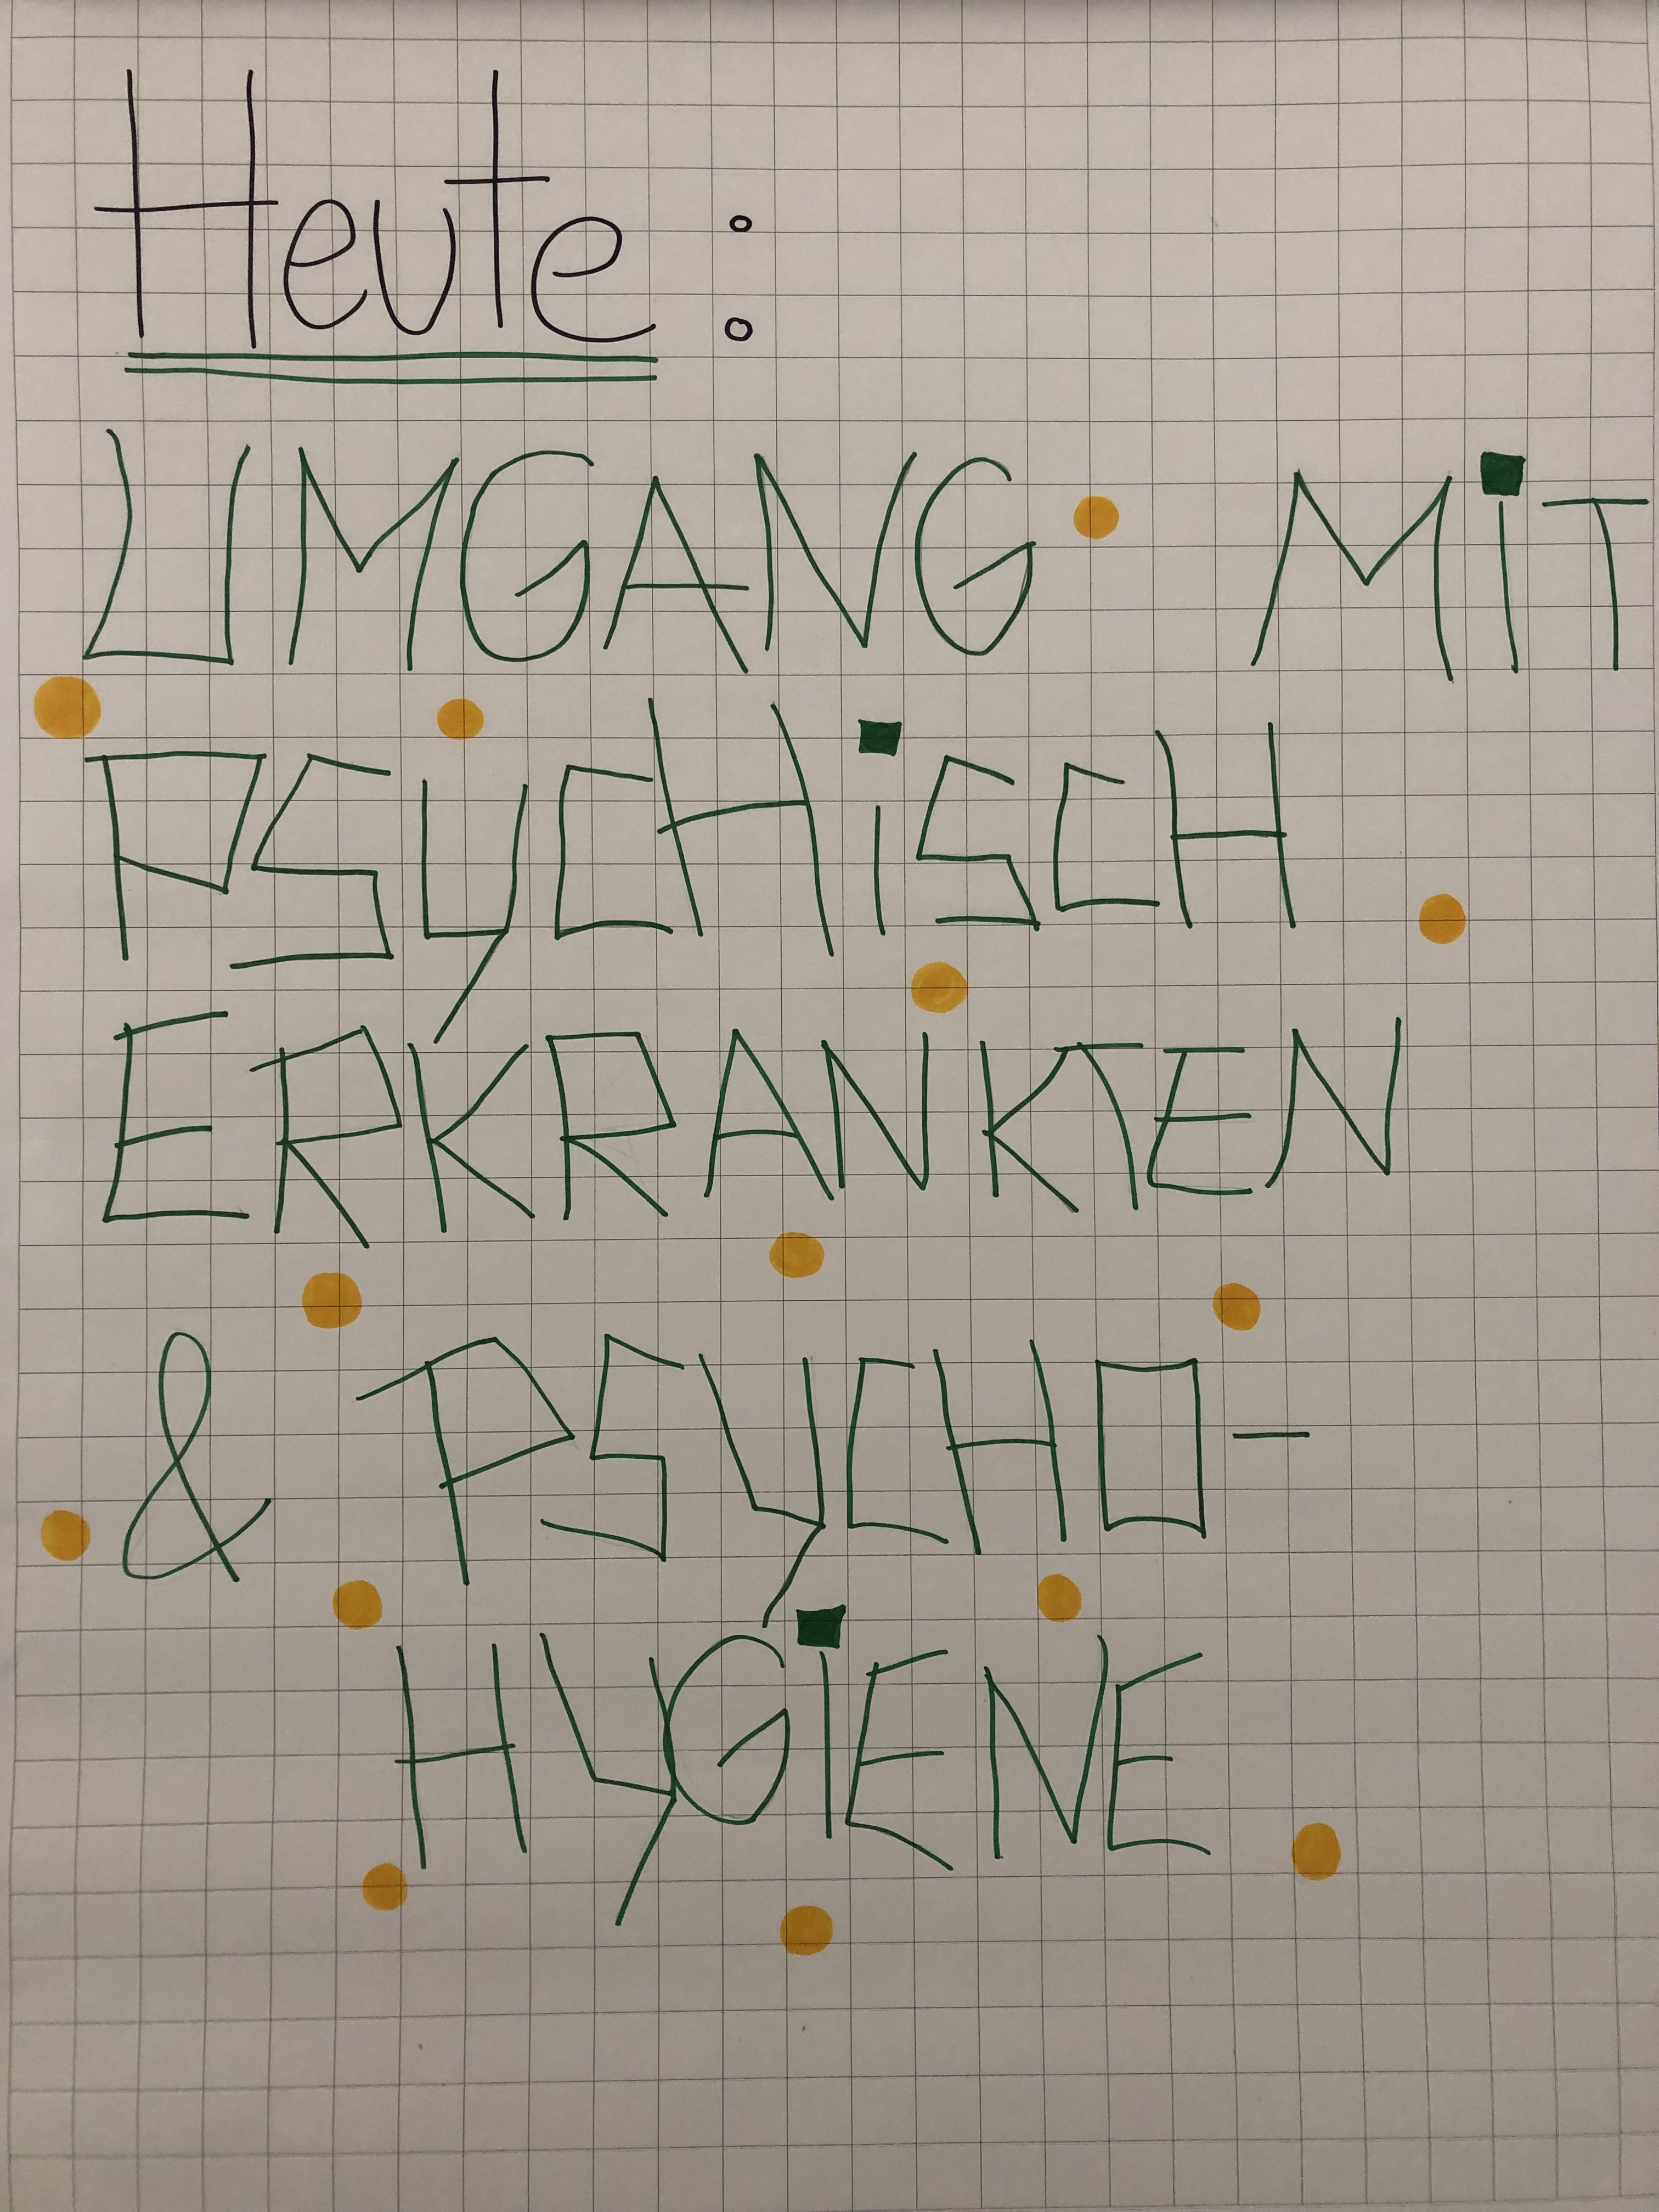 Heute:
UMGANG MiT
PSYCHiSCH
ERKRANKTEN
& PSYCHO-
HYGiENE